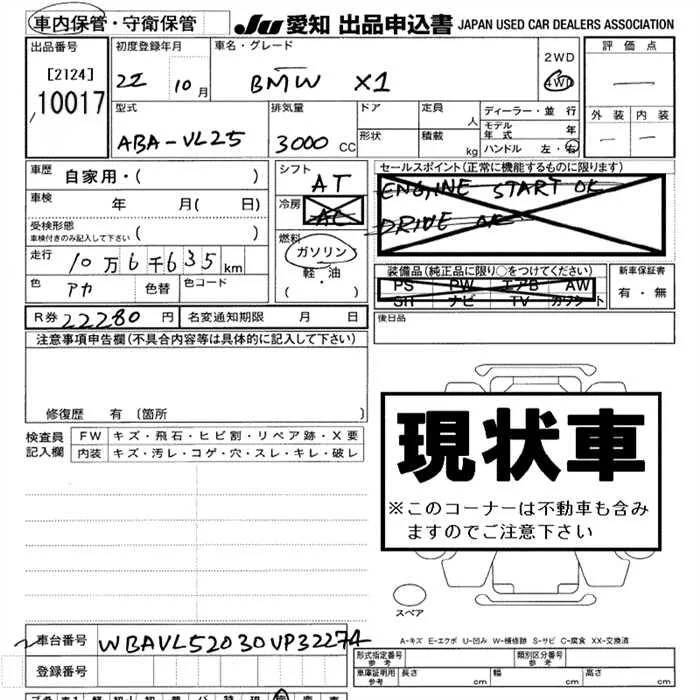 車内保管・守衛保管 JU 愛知 出品申込書 JAPAN USED CAR DEALERS ASSOCIATION
出品番号 初度登録年月 車名・グレード 2WD 評価点
[2124] 22 10月 BMW X1 4WD
10017 型式 排気量 ドア 定員 人 ディーラー・並行 外装 内装
ABA-VL25 3000cc 形状 積載 kg モデル年式 年
ハンドル 左・右
車歴 自家用・( ) シフト AT セールスポイント(正常に機能するものに限ります)
車検 年 月( 日) 冷房 AC ENGINE START OK
受検形態 車検付きのみ記入して下さい ( ) DRIVE OK
走行 10万6千635km 燃料 ガソリン 装備品(純正品に限り○をつけてください) 新車保証書
色 アカ 色替 色コード 軽・油 PS PW エアB AW 有・無
( ) SH ナビ TV カワシート
R券 22280円 名変通知期限 月 日 後日品
注意事項申告欄(不具合内容等は具体的に記入して下さい)
修復歴 有 〔箇所 〕
現状車
※このコーナーは不動車も含みますのでご注意下さい
検査員記入欄 FW キズ・飛石・ヒビ割・リペア跡・X要
内装 キズ・汚レ・コゲ・穴・スレ・キレ・破レ
スペア
A-キズ E-エクボ U-凹み W-補修跡 S-サビ C-腐食 XX-交換済
車台番号 WBAVL52030VP32274
登録番号
形式指定番号 参考 類別区分番号 参考
車庫証明用 参考 長さ cm 幅 cm 高さ cm